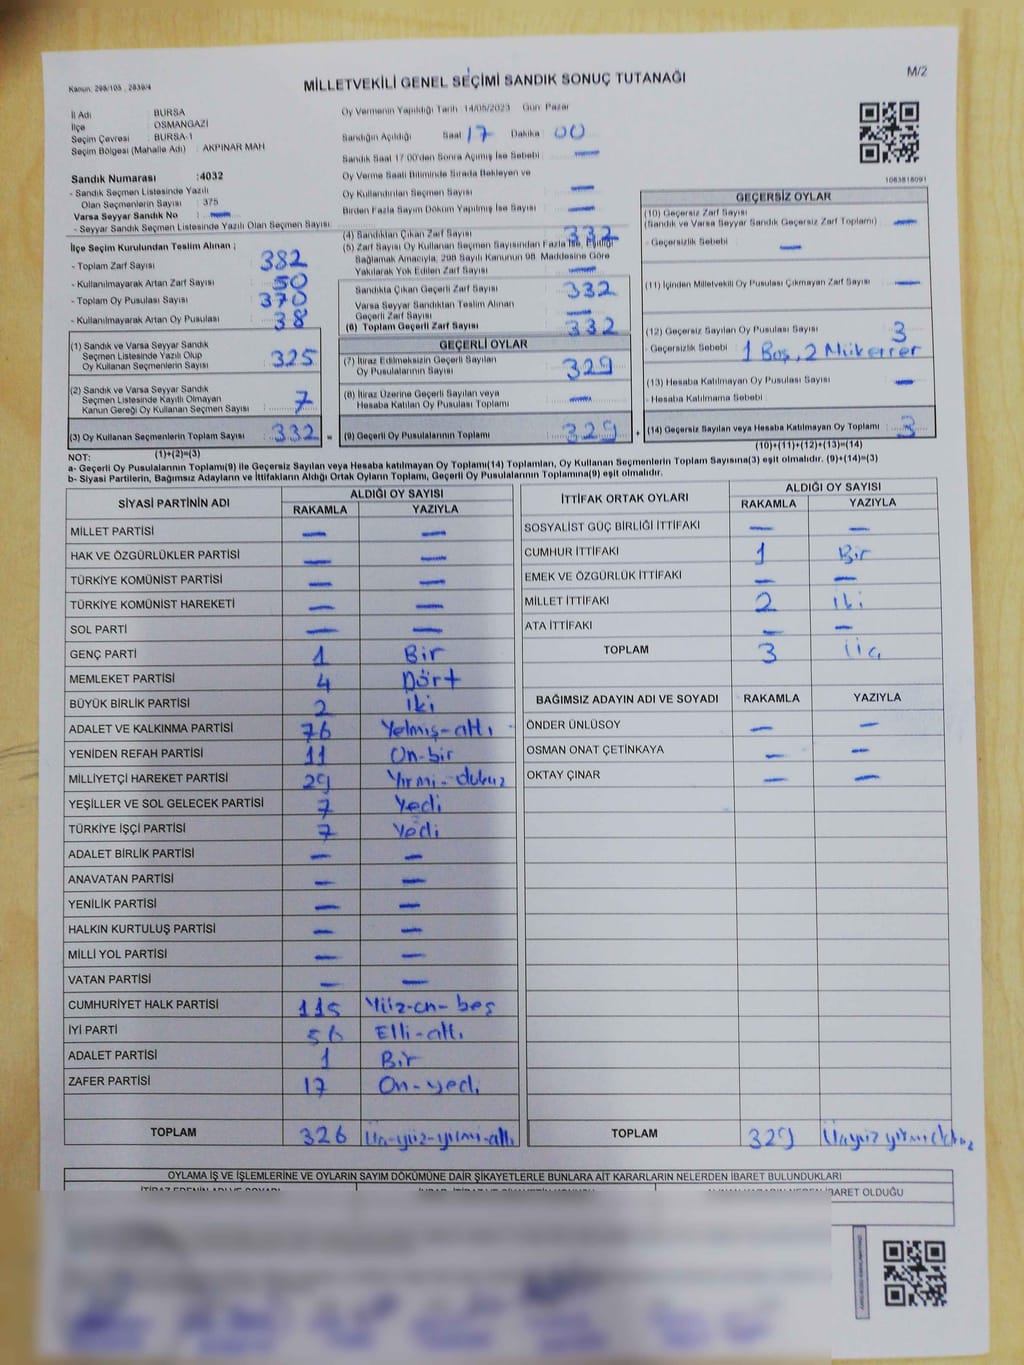 Kanun, 298/105 , 2839/4
MİLLETVEKİLİ GENEL SEÇİMİ SANDIK SONUÇ TUTANAĞI
M/2
İl Adı : BURSA
İlçe : OSMANGAZİ
Seçim Çevresi : BURSA-1
Seçim Bölgesi (Mahalle Adı) : AKPINAR MAH
Sandık Numarası :4032
- Sandık Seçmen Listesinde Yazılı
Olan Seçmenlerin Sayısı : 375
Varsa Seyyar Sandık No —
- Seyyar Sandık Seçmen Listesinde Yazılı Olan Seçmen Sayısı
İlçe Seçim Kurulundan Teslim Alınan ;
- Toplam Zarf Sayısı 382
- Kullanılmayarak Artan Zarf Sayısı 50
- Toplam Oy Pusulası Sayısı 370
- Kullanılmayarak Artan Oy Pusulası 38
(1) Sandık ve Varsa Seyyar Sandık
Seçmen Listesinde Yazılı Olup
Oy Kullanan Seçmenlerin Sayısı 325
(2) Sandık ve Varsa Seyyar Sandık
Seçmen Listesinde Kayıtlı Olmayan
Kanun Gereği Oy Kullanan Seçmen Sayısı 7
(3) Oy Kullanan Seçmenlerin Toplam Sayısı 332 =
(1)+(2)=(3)
Oy Vermenin Yapıldığı Tarih 14/05/2023 Gün Pazar
Sandığın Açıldığı Saat 17 Dakika 00
Sandık Saat 17:00'den Sonra Açılmış İse Sebebi —
Oy Verme Saati Bitiminde Sırada Bekleyen ve
Oy Kullandırılan Seçmen Sayısı —
Birden Fazla Sayım Döküm Yapılmış İse Sayısı —
(4) Sandıktan Çıkan Zarf Sayısı 332
(5) Zarf Sayısı Oy Kullanan Seçmen Sayısından Fazla İse, Eşitliği
Sağlamak Amacıyla, 298 Sayılı Kanunun 98. Maddesine Göre
Yakılarak Yok Edilen Zarf Sayısı —
Sandıkta Çıkan Geçerli Zarf Sayısı 332
Varsa Seyyar Sandıktan Teslim Alınan
Geçerli Zarf Sayısı —
(6) Toplam Geçerli Zarf Sayısı 332
GEÇERLİ OYLAR
(7) İtiraz Edilmeksizin Geçerli Sayılan
Oy Pusulalarının Sayısı 329
(8) İtiraz Üzerine Geçerli Sayılan veya
Hesaba Katılan Oy Pusulası Toplamı —
(9) Geçerli Oy Pusulalarının Toplamı 329 +
1083818091
GEÇERSİZ OYLAR
(10) Geçersiz Zarf Sayısı
(Sandık ve Varsa Seyyar Sandık Geçersiz Zarf Toplamı) —
- Geçersizlik Sebebi : —
(11) İçinden Milletvekili Oy Pusulası Çıkmayan Zarf Sayısı —
(12) Geçersiz Sayılan Oy Pusulası Sayısı 3
- Geçersizlik Sebebi : 1 Boş, 2 Mükerrer
(13) Hesaba Katılmayan Oy Pusulası Sayısı —
- Hesaba Katılmama Sebebi :
(14) Geçersiz Sayılan veya Hesaba Katılmayan Oy Toplamı 3
(10)+(11)+(12)+(13)=(14)
NOT:
a- Geçerli Oy Pusulalarının Toplamı(9) ile Geçersiz Sayılan veya Hesaba katılmayan Oy Toplamı(14) Toplamları, Oy Kullanan Seçmenlerin Toplam Sayısına(3) eşit olmalıdır. (9)+(14)=(3)
b- Siyasi Partilerin, Bağımsız Adayların ve İttifakların Aldığı Ortak Oyların Toplamı, Geçerli Oy Pusulalarının Toplamına(9) eşit olmalıdır.
SİYASİ PARTİNİN ADI ALDIĞI OY SAYISI
RAKAMLA YAZIYLA
MİLLET PARTİSİ — —
HAK VE ÖZGÜRLÜKLER PARTİSİ — —
TÜRKİYE KOMÜNİST PARTİSİ — —
TÜRKİYE KOMÜNİST HAREKETİ — —
SOL PARTİ — —
GENÇ PARTİ 1 Bir
MEMLEKET PARTİSİ 4 Dört
BÜYÜK BİRLİK PARTİSİ 2 İki
ADALET VE KALKINMA PARTİSİ 76 Yetmiş-altı
YENİDEN REFAH PARTİSİ 11 On-bir
MİLLİYETÇİ HAREKET PARTİSİ 29 Yirmi-dokuz
YEŞİLLER VE SOL GELECEK PARTİSİ 7 Yedi
TÜRKİYE İŞÇİ PARTİSİ 7 Yedi
ADALET BİRLİK PARTİSİ — —
ANAVATAN PARTİSİ — —
YENİLİK PARTİSİ — —
HALKIN KURTULUŞ PARTİSİ — —
MİLLİ YOL PARTİSİ — —
VATAN PARTİSİ — —
CUMHURİYET HALK PARTİSİ 115 Yüz-on-beş
İYİ PARTİ 56 Elli-altı
ADALET PARTİSİ 1 Bir
ZAFER PARTİSİ 17 On-yedi
TOPLAM 326 Üç-yüz-yirmi-altı
İTTİFAK ORTAK OYLARI ALDIĞI OY SAYISI
RAKAMLA YAZIYLA
SOSYALİST GÜÇ BİRLİĞİ İTTİFAKI — —
CUMHUR İTTİFAKI 1 Bir
EMEK VE ÖZGÜRLÜK İTTİFAKI — —
MİLLET İTTİFAKI 2 İki
ATA İTTİFAKI — —
TOPLAM 3 Üç
BAĞIMSIZ ADAYIN ADI VE SOYADI RAKAMLA YAZIYLA
ÖNDER ÜNLÜSOY — —
OSMAN ONAT ÇETİNKAYA — —
OKTAY ÇINAR — —
TOPLAM 329 Üçyüzyirmidokuz
OYLAMA İŞ VE İŞLEMLERİNE VE OYLARIN SAYIM DÖKÜMÜNE DAİR ŞİKAYETLERLE BUNLARA AİT KARARLARIN NELERDEN İBARET BULUNDUKLARI
İBARET OLDUĞU